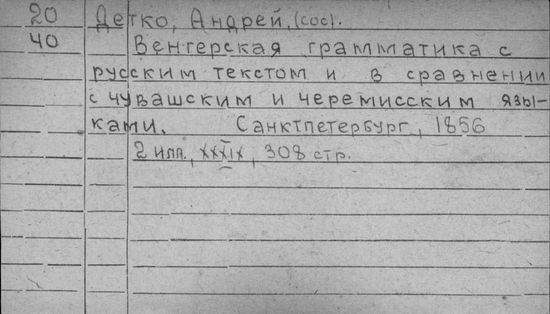 20 Детко, Андрей, (сос).
40 Венгерская грамматика с
русским текстом и в сравнении
с чувашским и черемисским язы-
ками. Санктпетербург, 1856
2 илл., XXXIX, 308 стр.